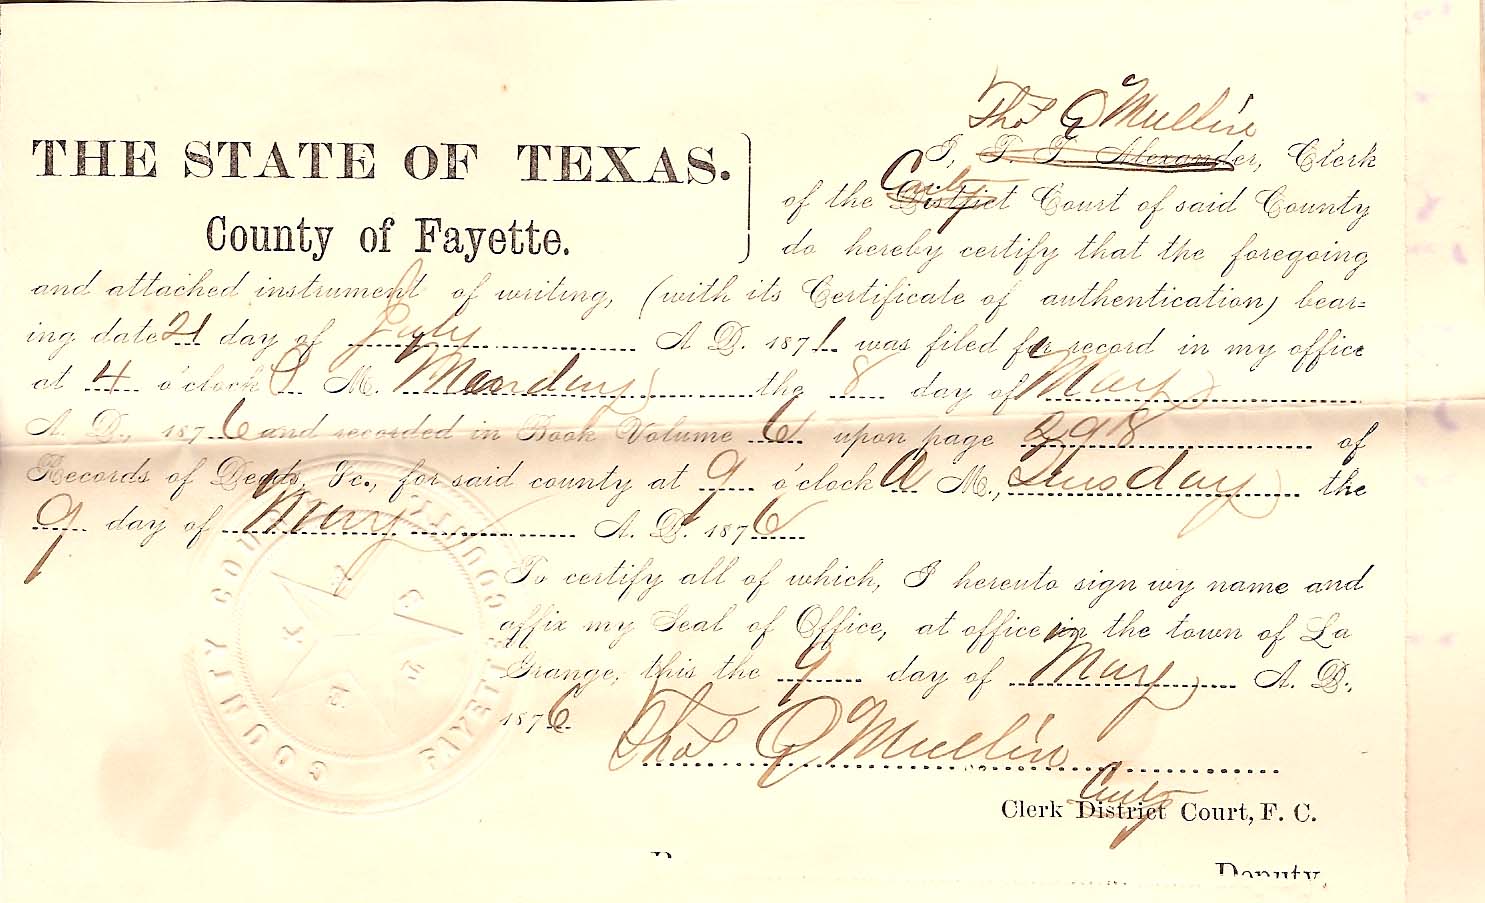 Thos Q Mullin
THE STATE OF TEXAS.
County of Fayette.
I, T. T. Alexander, Clerk
County
of the District Court of said County
do hereby certify that the foregoing
and attached instrument of writing, (with its Certificate of authentication) bear-
ing date 21 day of July A. D. 1871 was filed for record in my office
at 4 o'clock P M. Monday the 8 day of May
A. D., 1876 and recorded in Book Volume 6 upon page 298 of
Records of Deeds, &c., for said county at 9 o'clock A M., Tuesday the
9 day of May A. D. 1876
To certify all of which, I hereunto sign my name and
affix my Seal of Office, at office in the town of La
Grange, this the 9 day of May A. D.,
1876
Thos Q Mullin
County
Clerk District Court, F. C.
Deputy.
COUNTY COURT
FAYETTE
TEXAS